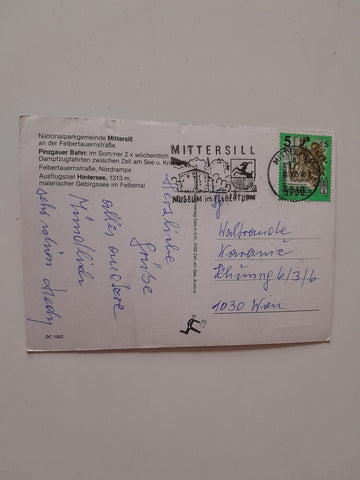 Nationalparkgemeinde Mittersill
an der Felbertauernstraße
Pinzgauer Bahn: im Sommer 2 x wöchentlich
Dampfzugfahrten zwischen Zell am See u. Kri
Felbertauernstraße, Nordrampe
Ausflugsziel Hintersee, 1313 m,
malerischer Gebirgssee im Felbertal
MITTERSILL
MUSEUM im FELBERTURM
5730
5 S
Herzliche
Grüße
alles andere
Mündlich
Waltraude
6/3/6
1030 Wien
OC 1052